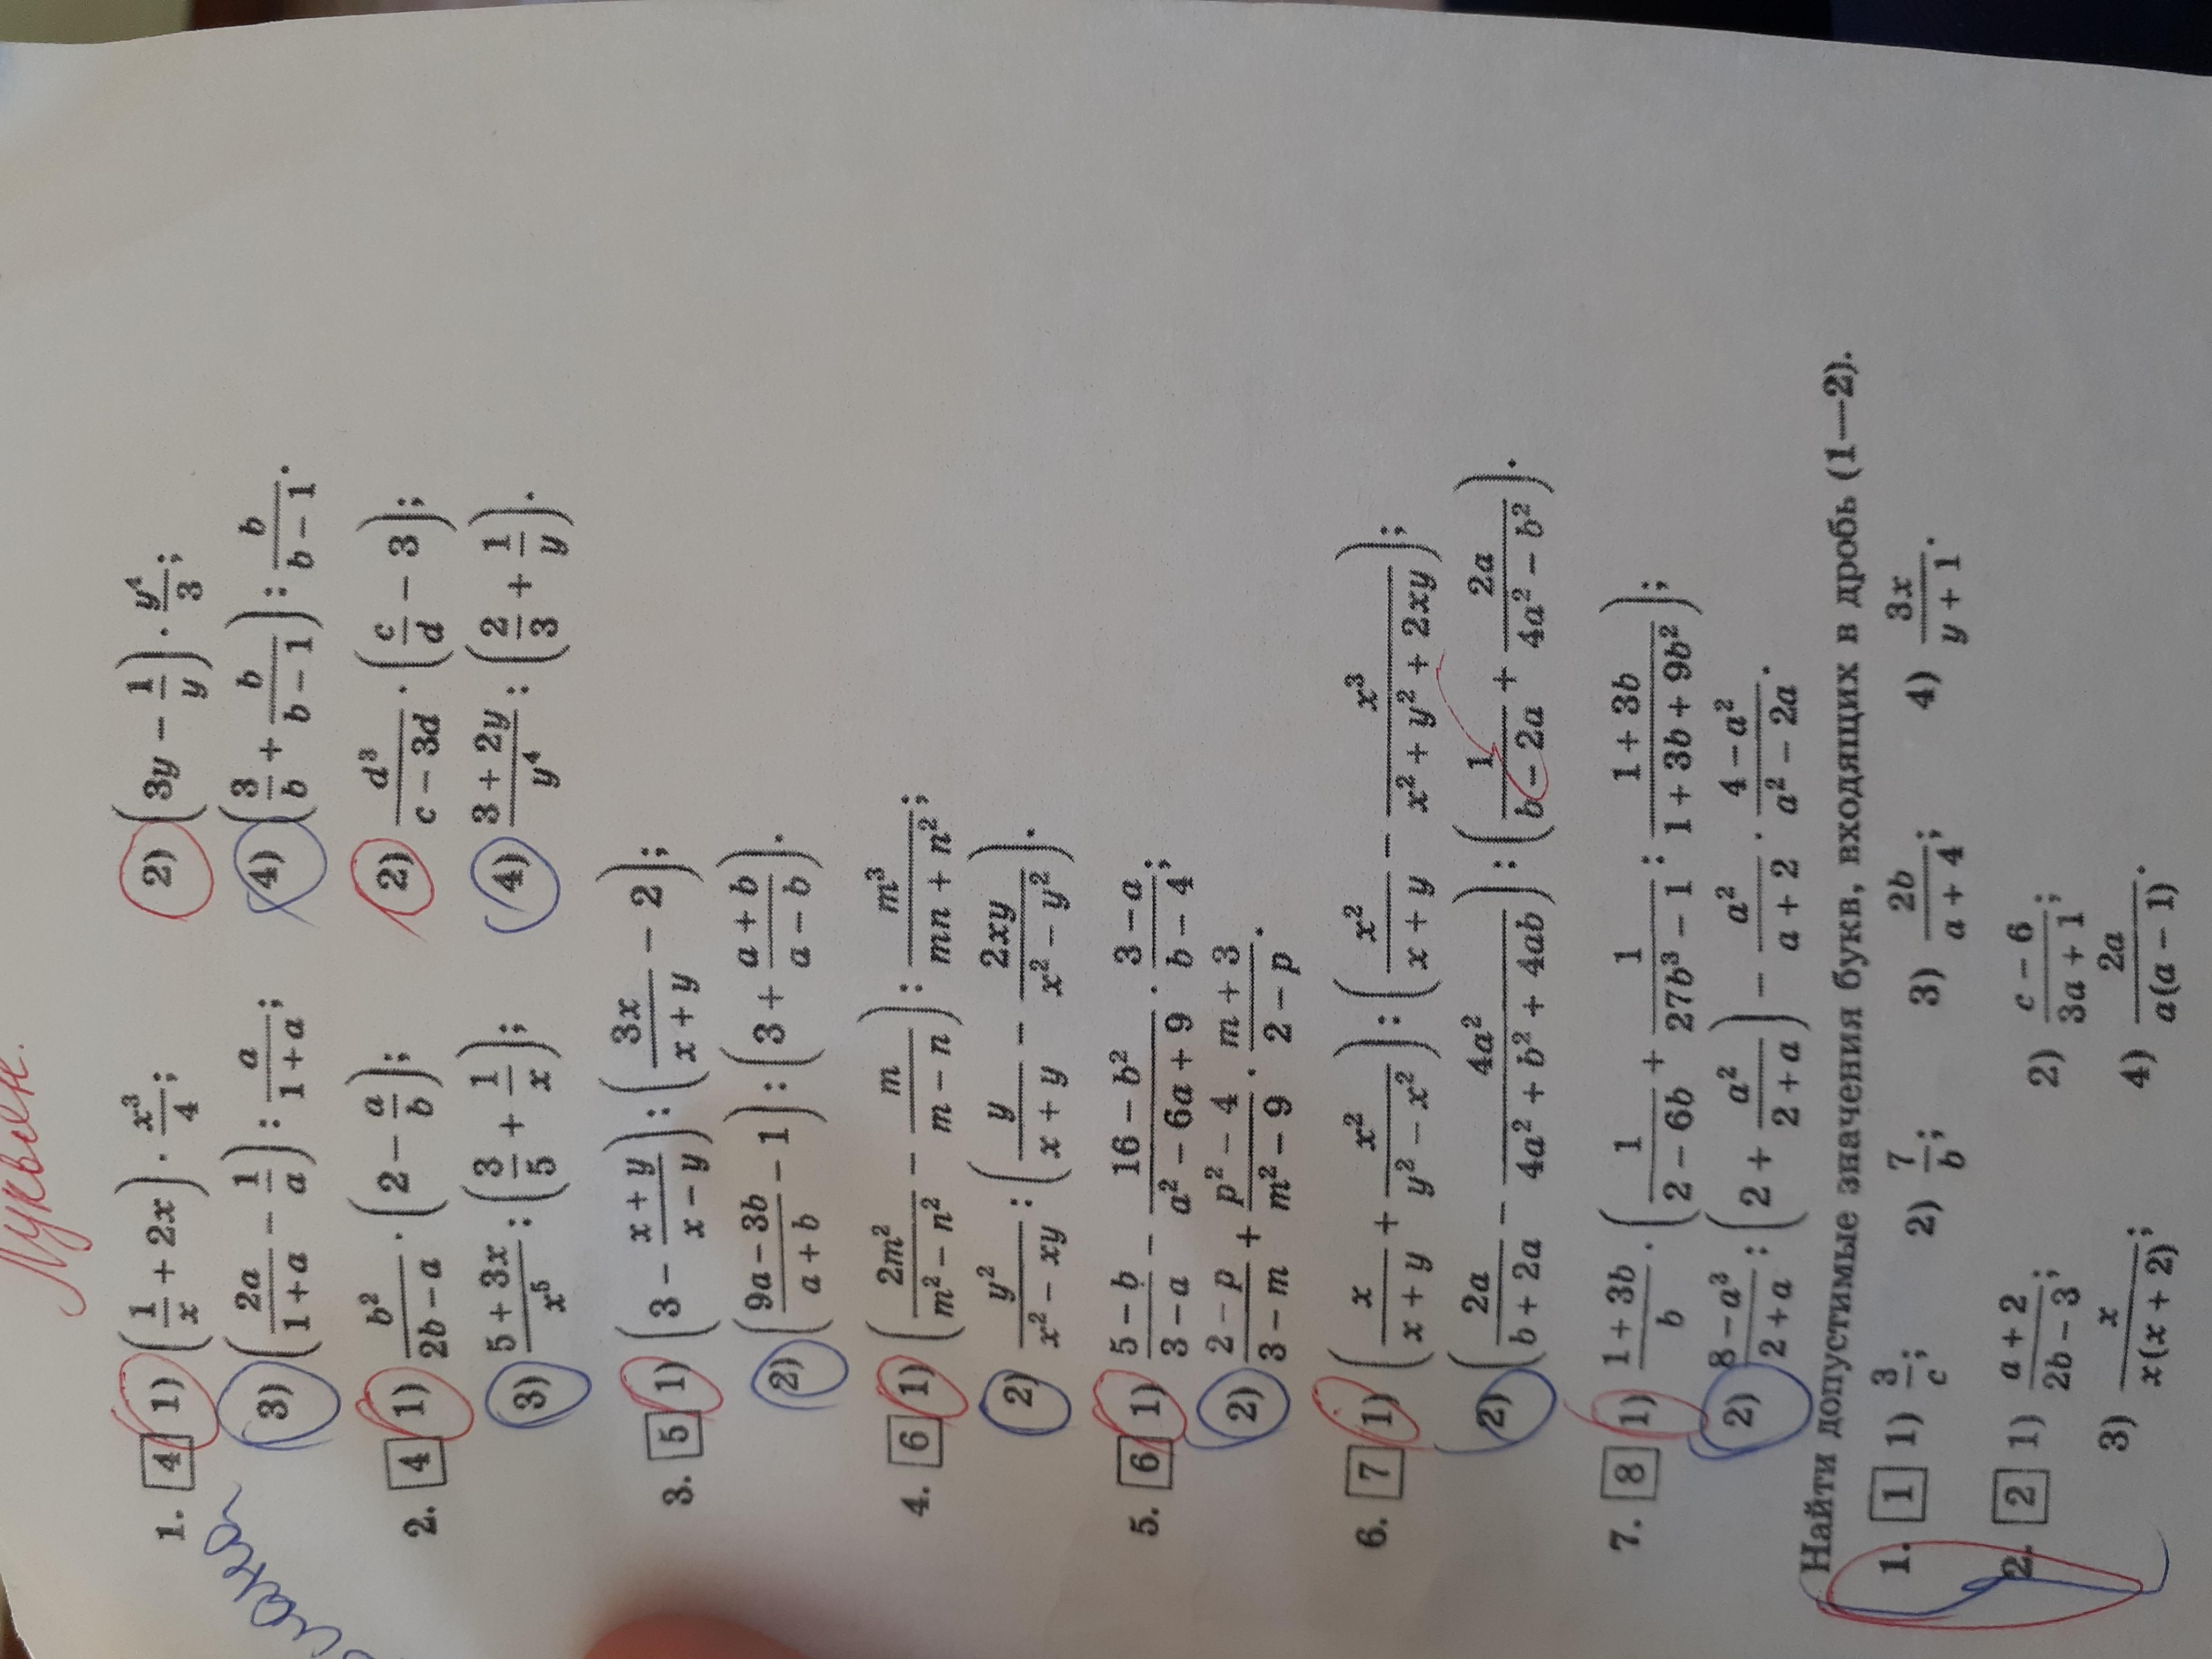 1. 4 1) (1/x + 2x) · x³/4; 2) (3y − 1/y) · y⁴/3;
3) (2a/(1 + a) − 1/a) : a/(1 + a); 4) (3/b + b/(b − 1)) : b/(b − 1).
2. 4 1) b²/(2b − a) · (2 − a/b); 2) d³/(c − 3d) · (c/d − 3);
3) (5 + 3x)/x⁵ : (3/5 + 1/x); 4) (3 + 2y)/y⁴ : (2/3 + 1/y).
3. 5 1) (3 − (x + y)/(x − y)) : (3x/(x + y) − 2);
2) ((9a − 3b)/(a + b) − 1) : (3 + (a + b)/(a − b)).
4. 6 1) (2m²/(m² − n²) − m/(m − n)) : m³/(mn + n²);
2) y²/(x² − xy) : (y/(x + y) − 2xy/(x² − y²)).
5. 6 1) (5 − b)/(3 − a) − (16 − b²)/(a² − 6a + 9) · (3 − a)/(b − 4);
2) (2 − p)/(3 − m) + (p² − 4)/(m² − 9) · (m + 3)/(2 − p).
6. 7 1) (x/(x + y) + x²/(y² − x²)) : (x²/(x + y) − x³/(x² + y² + 2xy));
2) (2a/(b + 2a) − 4a²/(4a² + b² + 4ab)) : (1/(b − 2a) + 2a/(4a² − b²)).
7. 8 1) (1 + 3b)/b · (1/(2 − 6b) + 1/(27b³ − 1) : (1 + 3b)/(1 + 3b + 9b²));
2) (8 − a³)/(2 + a) : (2 + a²/(2 + a)) − a²/(a + 2) · (4 − a²)/(a² − 2a).
Найти допустимые значения букв, входящих в дробь (1—2).
1. 1 1) 3/c; 2) 7/b; 3) 2b/(a + 4); 4) 3x/(y + 1).
2. 2 1) (a + 2)/(2b − 3); 2) (c − 6)/(3a + 1);
3) x/(x(x + 2)); 4) 2a/(a(a − 1)).